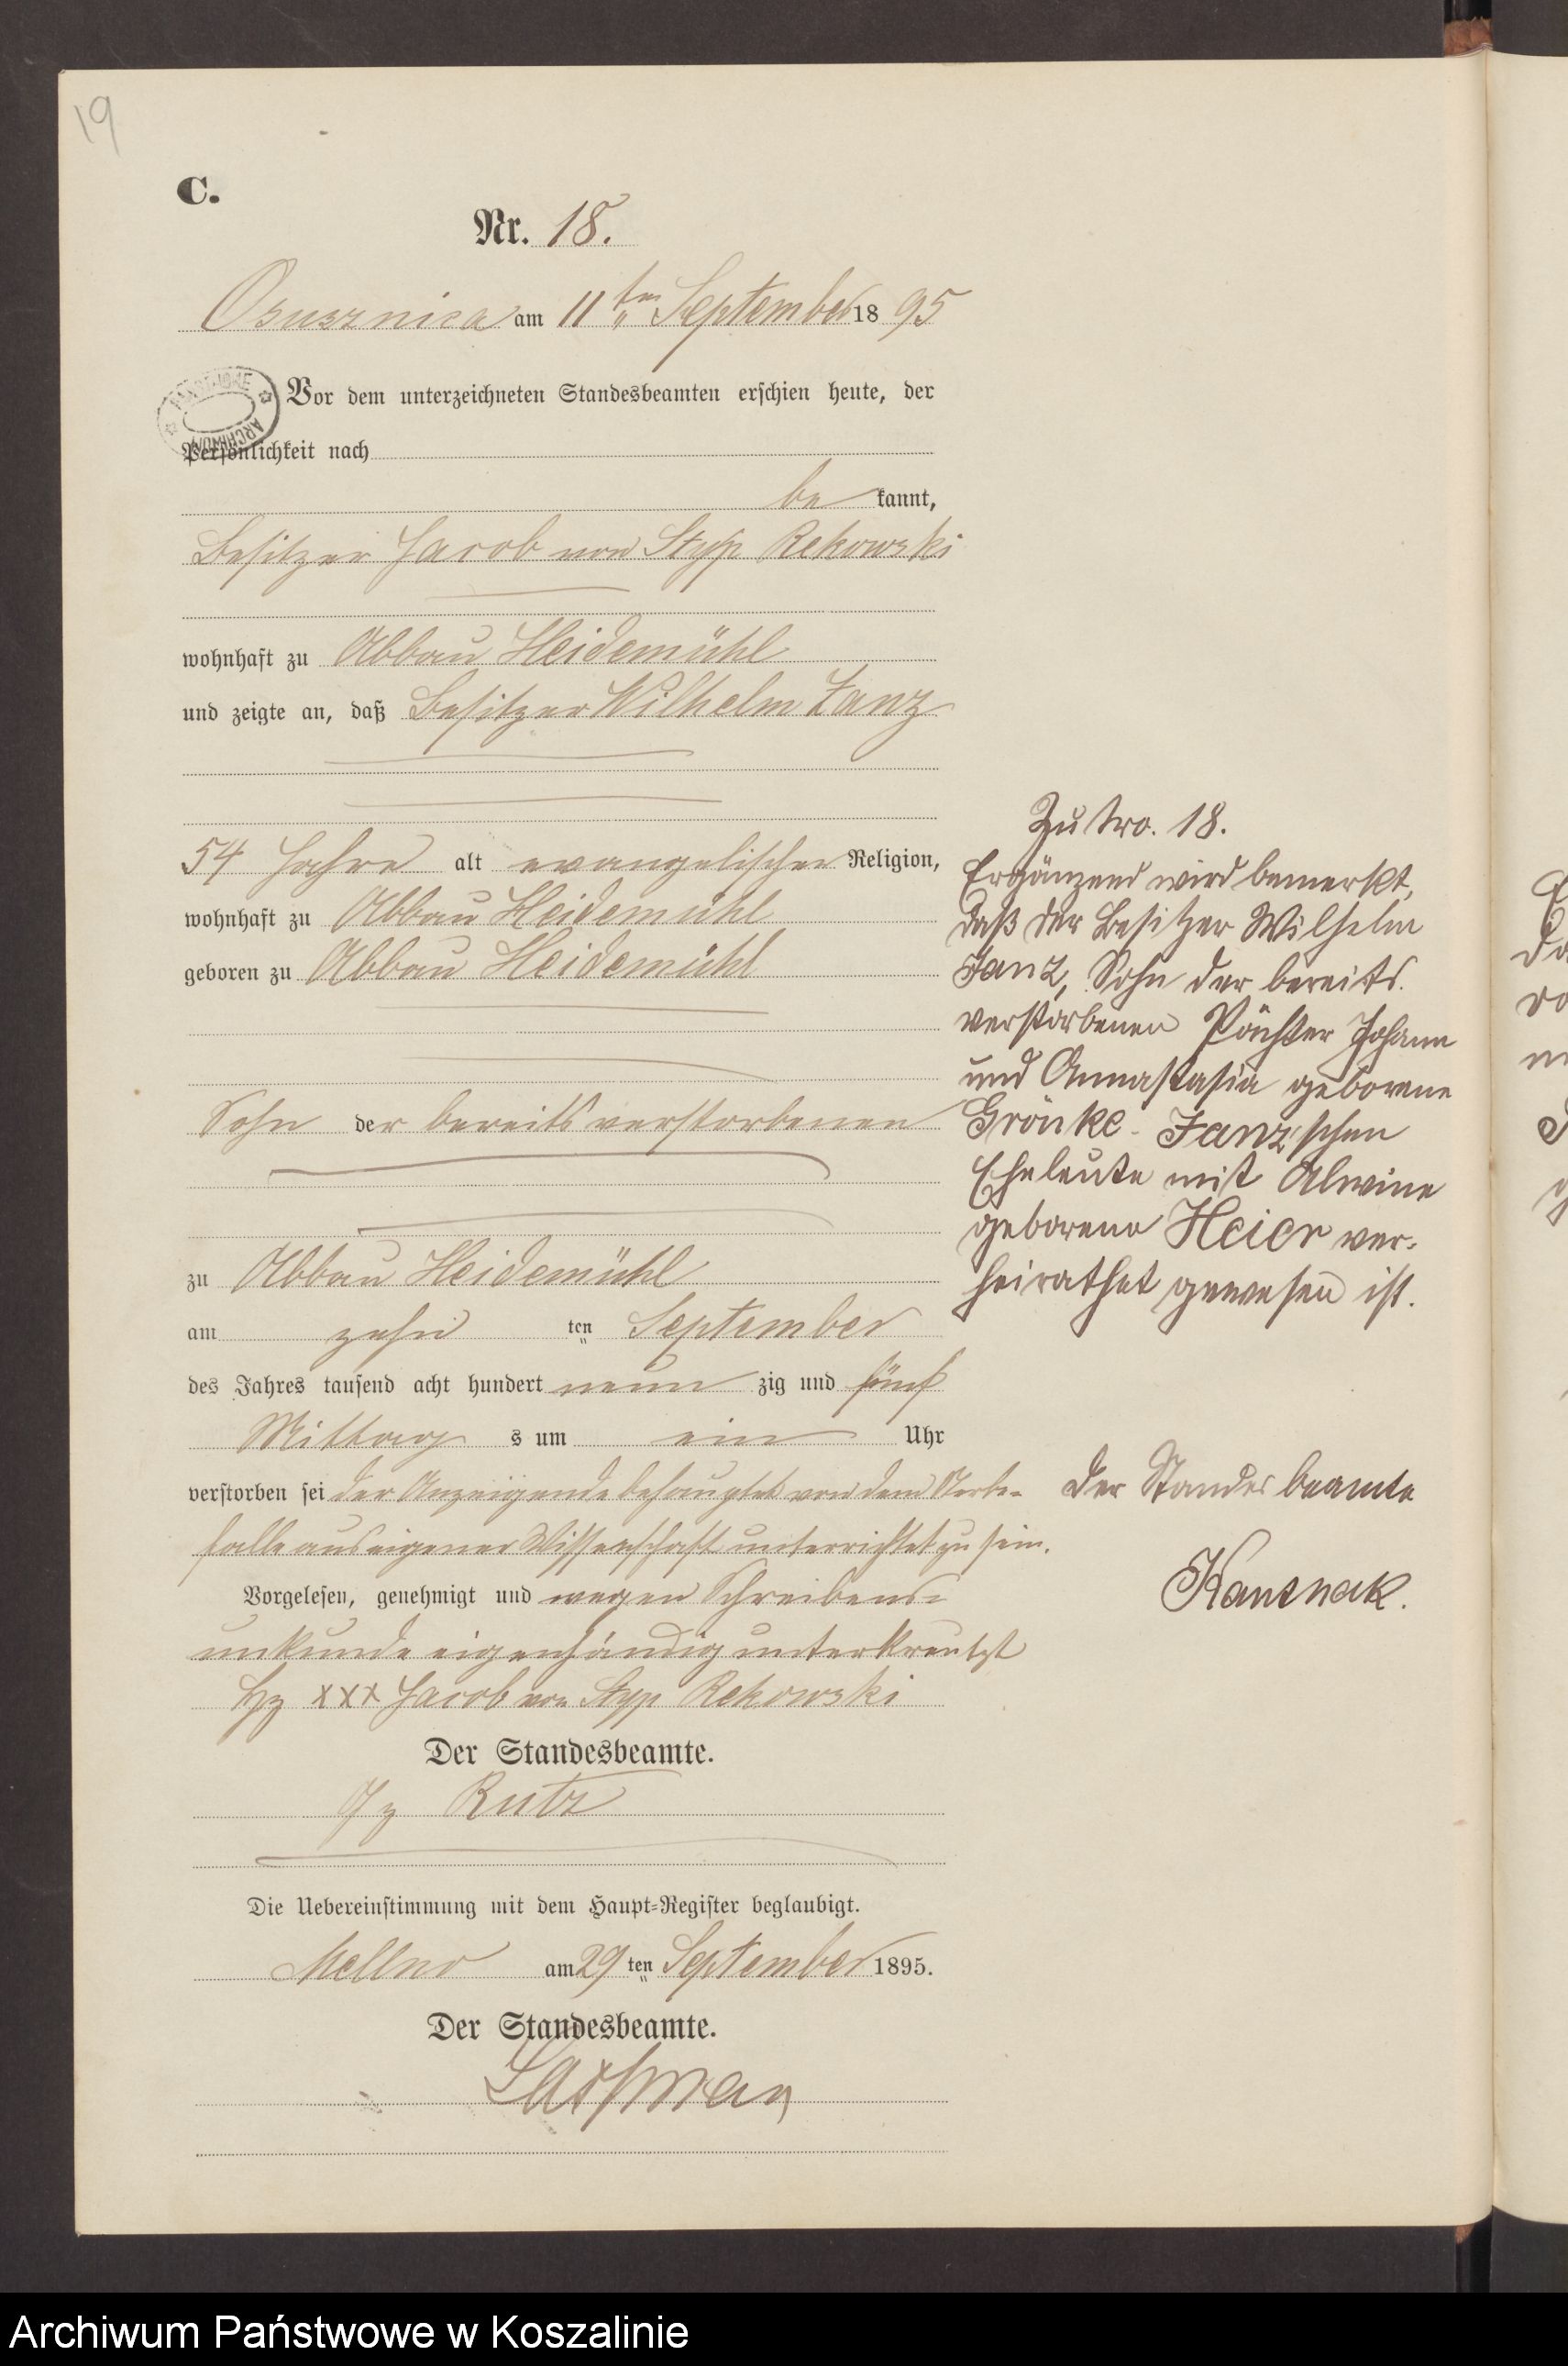 19
C.
Nr. 18.
Osusznica am 11ten September 1895
PAŃSTWOWE ARCHIWUM
Vor dem unterzeichneten Standesbeamten erschien heute, der
Persönlichkeit nach
be kannt,
Besitzer Jacob von Styp Rekowski
wohnhaft zu Abbau Heidemühl
und zeigte an, daß Besitzer Wilhelm Janz
54 Jahre alt evangelischer Religion,
wohnhaft zu Abbau Heidemühl
geboren zu Abbau Heidemühl
Sohn der bereits verstorbenen
zu Abbau Heidemühl
am zehn ten September
des Jahres tausend acht hundert neun zig und fünf
Mittag s um ein Uhr
verstorben sei der Anzeigende behauptet von dem Sterbe-
falle aus eigener Wissenschaft unterrichtet zu sein.
Vorgelesen, genehmigt und wegen Schreibens-
unkunde eigenhändig unterkreutzt
Hz xxx Jacob von Styp Rekowski
Der Standesbeamte.
Gz Rutz
Die Uebereinstimmung mit dem Haupt-Register beglaubigt.
Mellno am 29 ten September 1895.
Der Standesbeamte.
Zu Nro. 18.
Ergänzend wird bemerkt,
daß der Besitzer Wilhelm
Janz, Sohn der bereits
verstorbenen Pächter Johann
und Annastasia geborene
Grönke - Janz'schen
Eheleute mit Alwine
geborene Heier ver-
heirathet gewesen ist.
Der Standesbeamte
Archiwum Państwowe w Koszalinie